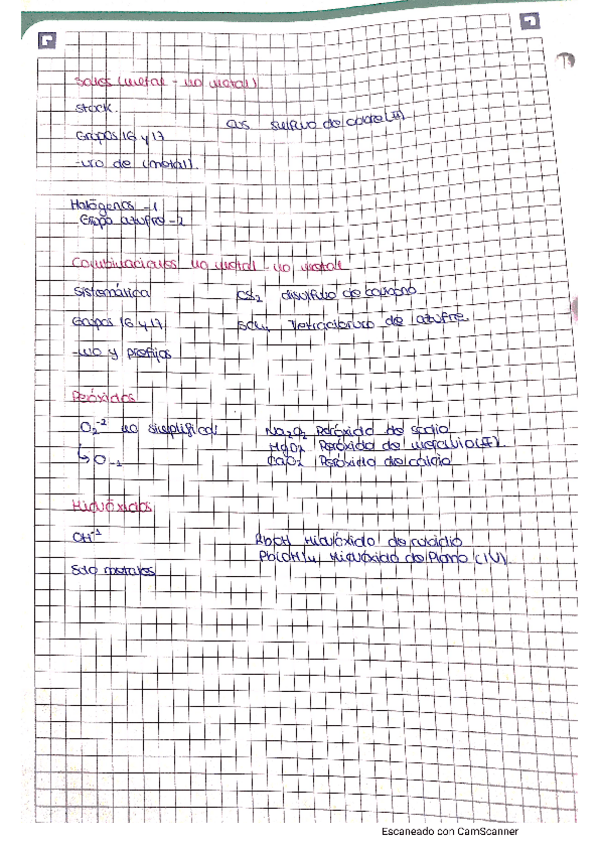 Sales (metal - no metal)
Stock.
CuS sulfuro de cobre (II)
Grupos 16 y 17
-uro de (metal).
Halógenos -1
Grupo azufre -2
Combinaciones no metal - no metal
Sistemática CS2 disulfuro de carbono
Grupos 16 y 17 SCl4 Tetracloruro de azufre
-uro y prefijos
Peróxidos
O2^-2 no simplificar Na2O2 Peróxido de sodio
HgO2 Peróxido de mercurio (II).
↳ O -1 CaO2 Peróxido de calcio
Hidróxidos
OH^-1 RbOH Hidróxido de rubidio
Pb(OH)4 Hidróxido de Plomo (IV)
Solo metales
Escaneado con CamScanner